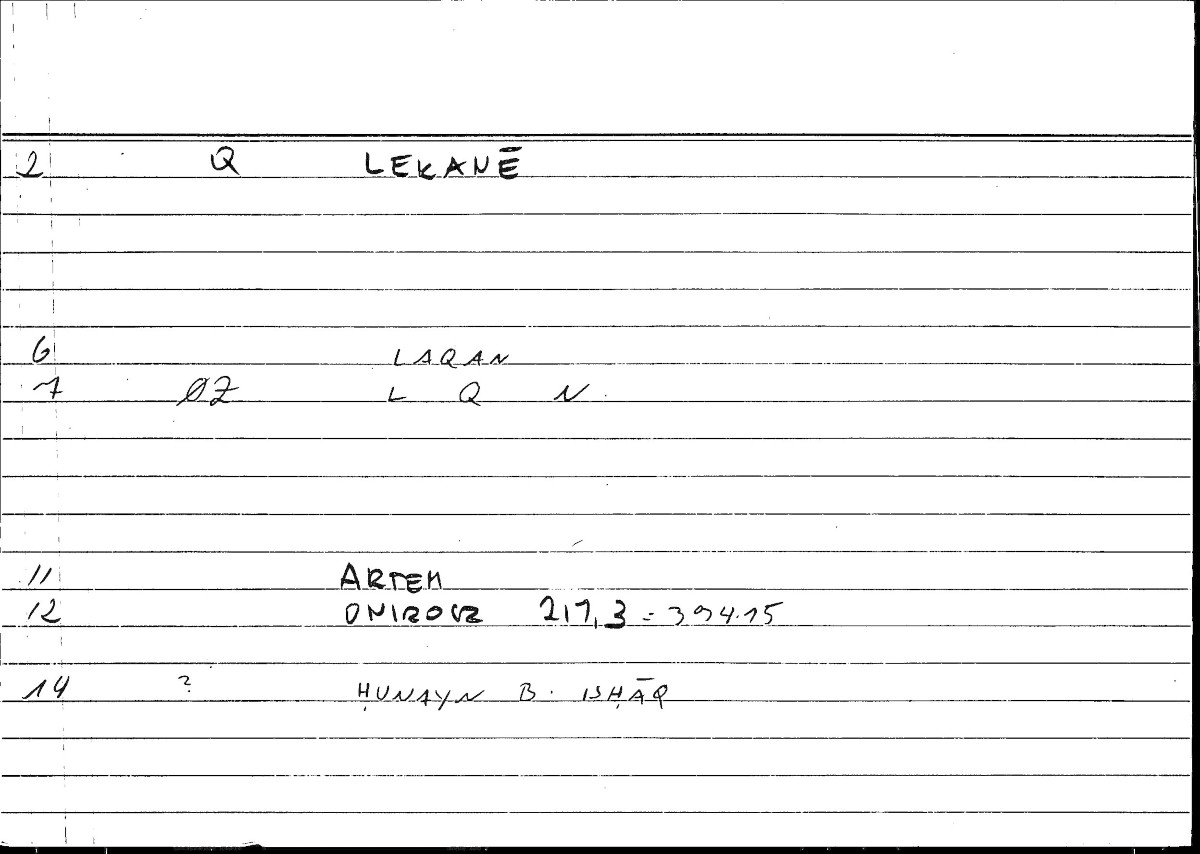 2 Q LEKANĒ
6 LAQAN
7 ØZ L Q N
11 ARTEM
12 ONIROCR 217,3 = 394.15
14 ? ḤUNAYN B. ISḤĀQ